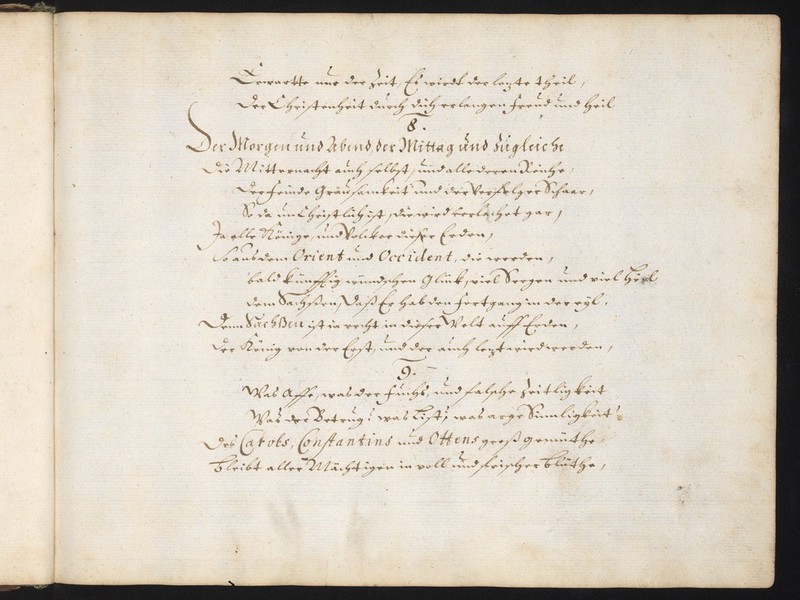 Erwartte nur der Zeit, Es wirdt der lezte theil,
der Christenheit durch dich erlangen freud und heil
8.
Der Morgen und Abend, der Mittag und zugleiche
Die Mitternacht auch selbst, und alle deren Reiche,
der feinde Grausamkeit und der Verfolger Schaar,
So da unChristlich ist, die wird verlachet gar,
Ja alle Könige, und Völcker dieser Erden,
so aus dem Orient und Occident, die werden,
bald künfftig wündschen Glück, viel Seegen und viel Heil
dem Sachßen, Daß Er hab den fortgang in der eÿl,
Denn Sachßen ist ja recht in dieser Welt auff Erden,
der König von der Erst, und der auch lezt wird werden,
9.
Was Affe, was der fuchs, und falsche Zeitligkeit
Was der Betrug? was List, was arge Sinnligkeit?
des Carols, Constantins und Ottens groß gemüthe
bleibt aller Mächtigen in voll und frischer blüthe,